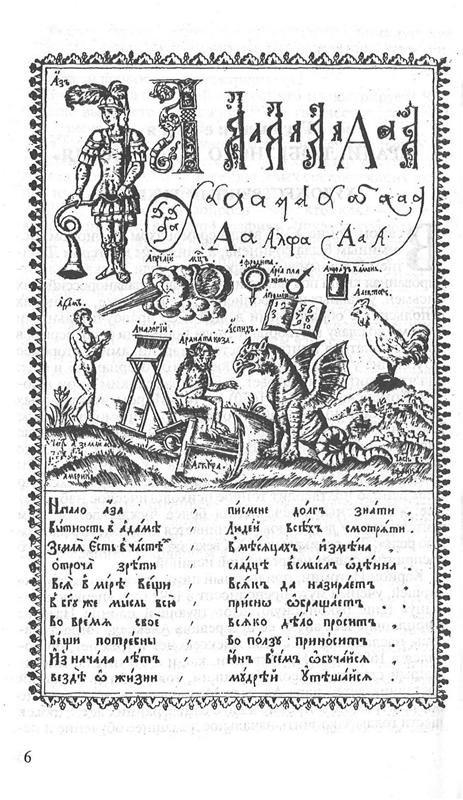 А҆зъ
А А А А А А
А а Алфа А а А
Априлїй мц҃ъ
Афродита
Адамъ
Аналогїй
Арапата коза
Аспидъ
Алекторъ
Америка
Начало аза писмене долгъ знати
Бытность в Адамѣ людей всѣхъ смотряти
Земля есть в частѣх в мѣсяцахъ измѣна
отроча зрѣти сладце в смыслъ ѡдѣина
вся в мере вещи всякъ да назираетъ
в бг҃у же мысль всю присны ѡбращаетъ
во время свое всяко дѣло проситъ
вещи потребны во ползу приноситъ
Из начала лѣтъ юн всѣм ѡбучайся
вездѣ ѡ жизни мудрѣй утѣшайся
6